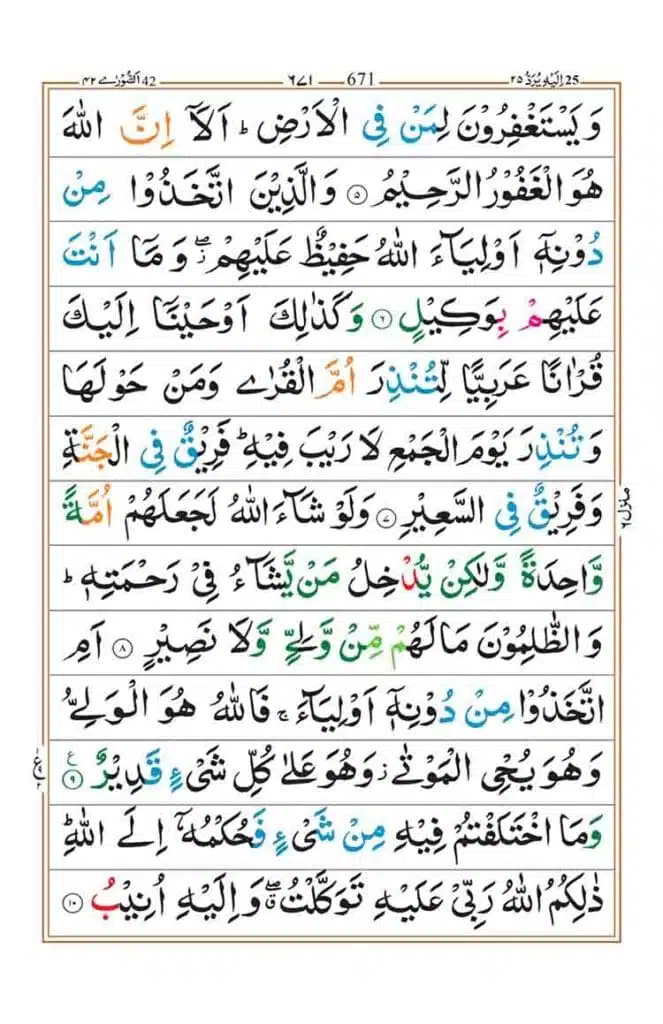 42 اَلشُّوْرٰى ٤٢ ٦٧١ 671 25 اِلَيْهِ يُرَدُّ ٢٥
وَ يَسْتَغْفِرُوْنَ لِمَنْ فِى الْاَرْضِ ؕ اَلَاۤ اِنَّ اللّٰهَ
هُوَ الْغَفُوْرُ الرَّحِيْمُ ۝٥ وَالَّذِيْنَ اتَّخَذُوْا مِنْ
دُوْنِهٖۤ اَوْلِيَآءَ اللّٰهُ حَفِيْظٌ عَلَيْهِمْ ۖز وَ مَاۤ اَنْتَ
عَلَيْهِمْ بِوَكِيْلٍ ۝٦ وَكَذٰلِكَ اَوْحَيْنَاۤ اِلَيْكَ
قُرْاٰنًا عَرَبِيًّا لِّتُنْذِرَ اُمَّ الْقُرٰى وَمَنْ حَوْلَهَا
وَ تُنْذِرَ يَوْمَ الْجَمْعِ لَا رَيْبَ فِيْهِ ؕ فَرِيْقٌ فِى الْجَنَّةِ
وَ فَرِيْقٌ فِى السَّعِيْرِ ۝٧ وَلَوْ شَآءَ اللّٰهُ لَجَعَلَهُمْ اُمَّةً
وَّاحِدَةً وَّلٰكِنْ يُّدْخِلُ مَنْ يَّشَآءُ فِىْ رَحْمَتِهٖ ؕ
وَالظّٰلِمُوْنَ مَا لَهُمْ مِّنْ وَّلِىٍّ وَّلَا نَصِيْرٍ ۝٨ اَمِ
اتَّخَذُوْا مِنْ دُوْنِهٖۤ اَوْلِيَآءَ ۚ فَاللّٰهُ هُوَ الْوَلِىُّ
وَهُوَ يُحْىِ الْمَوْتٰى ز وَهُوَ عَلٰى كُلِّ شَىْءٍ قَدِيْرٌ ۝٩
وَمَا اخْتَلَفْتُمْ فِيْهِ مِنْ شَىْءٍ فَحُكْمُهٗۤ اِلَى اللّٰهِ ؕ
ذٰلِكُمُ اللّٰهُ رَبِّىْ عَلَيْهِ تَوَكَّلْتُ ۖق وَاِلَيْهِ اُنِيْبُ ۝١٠
منزل ٦